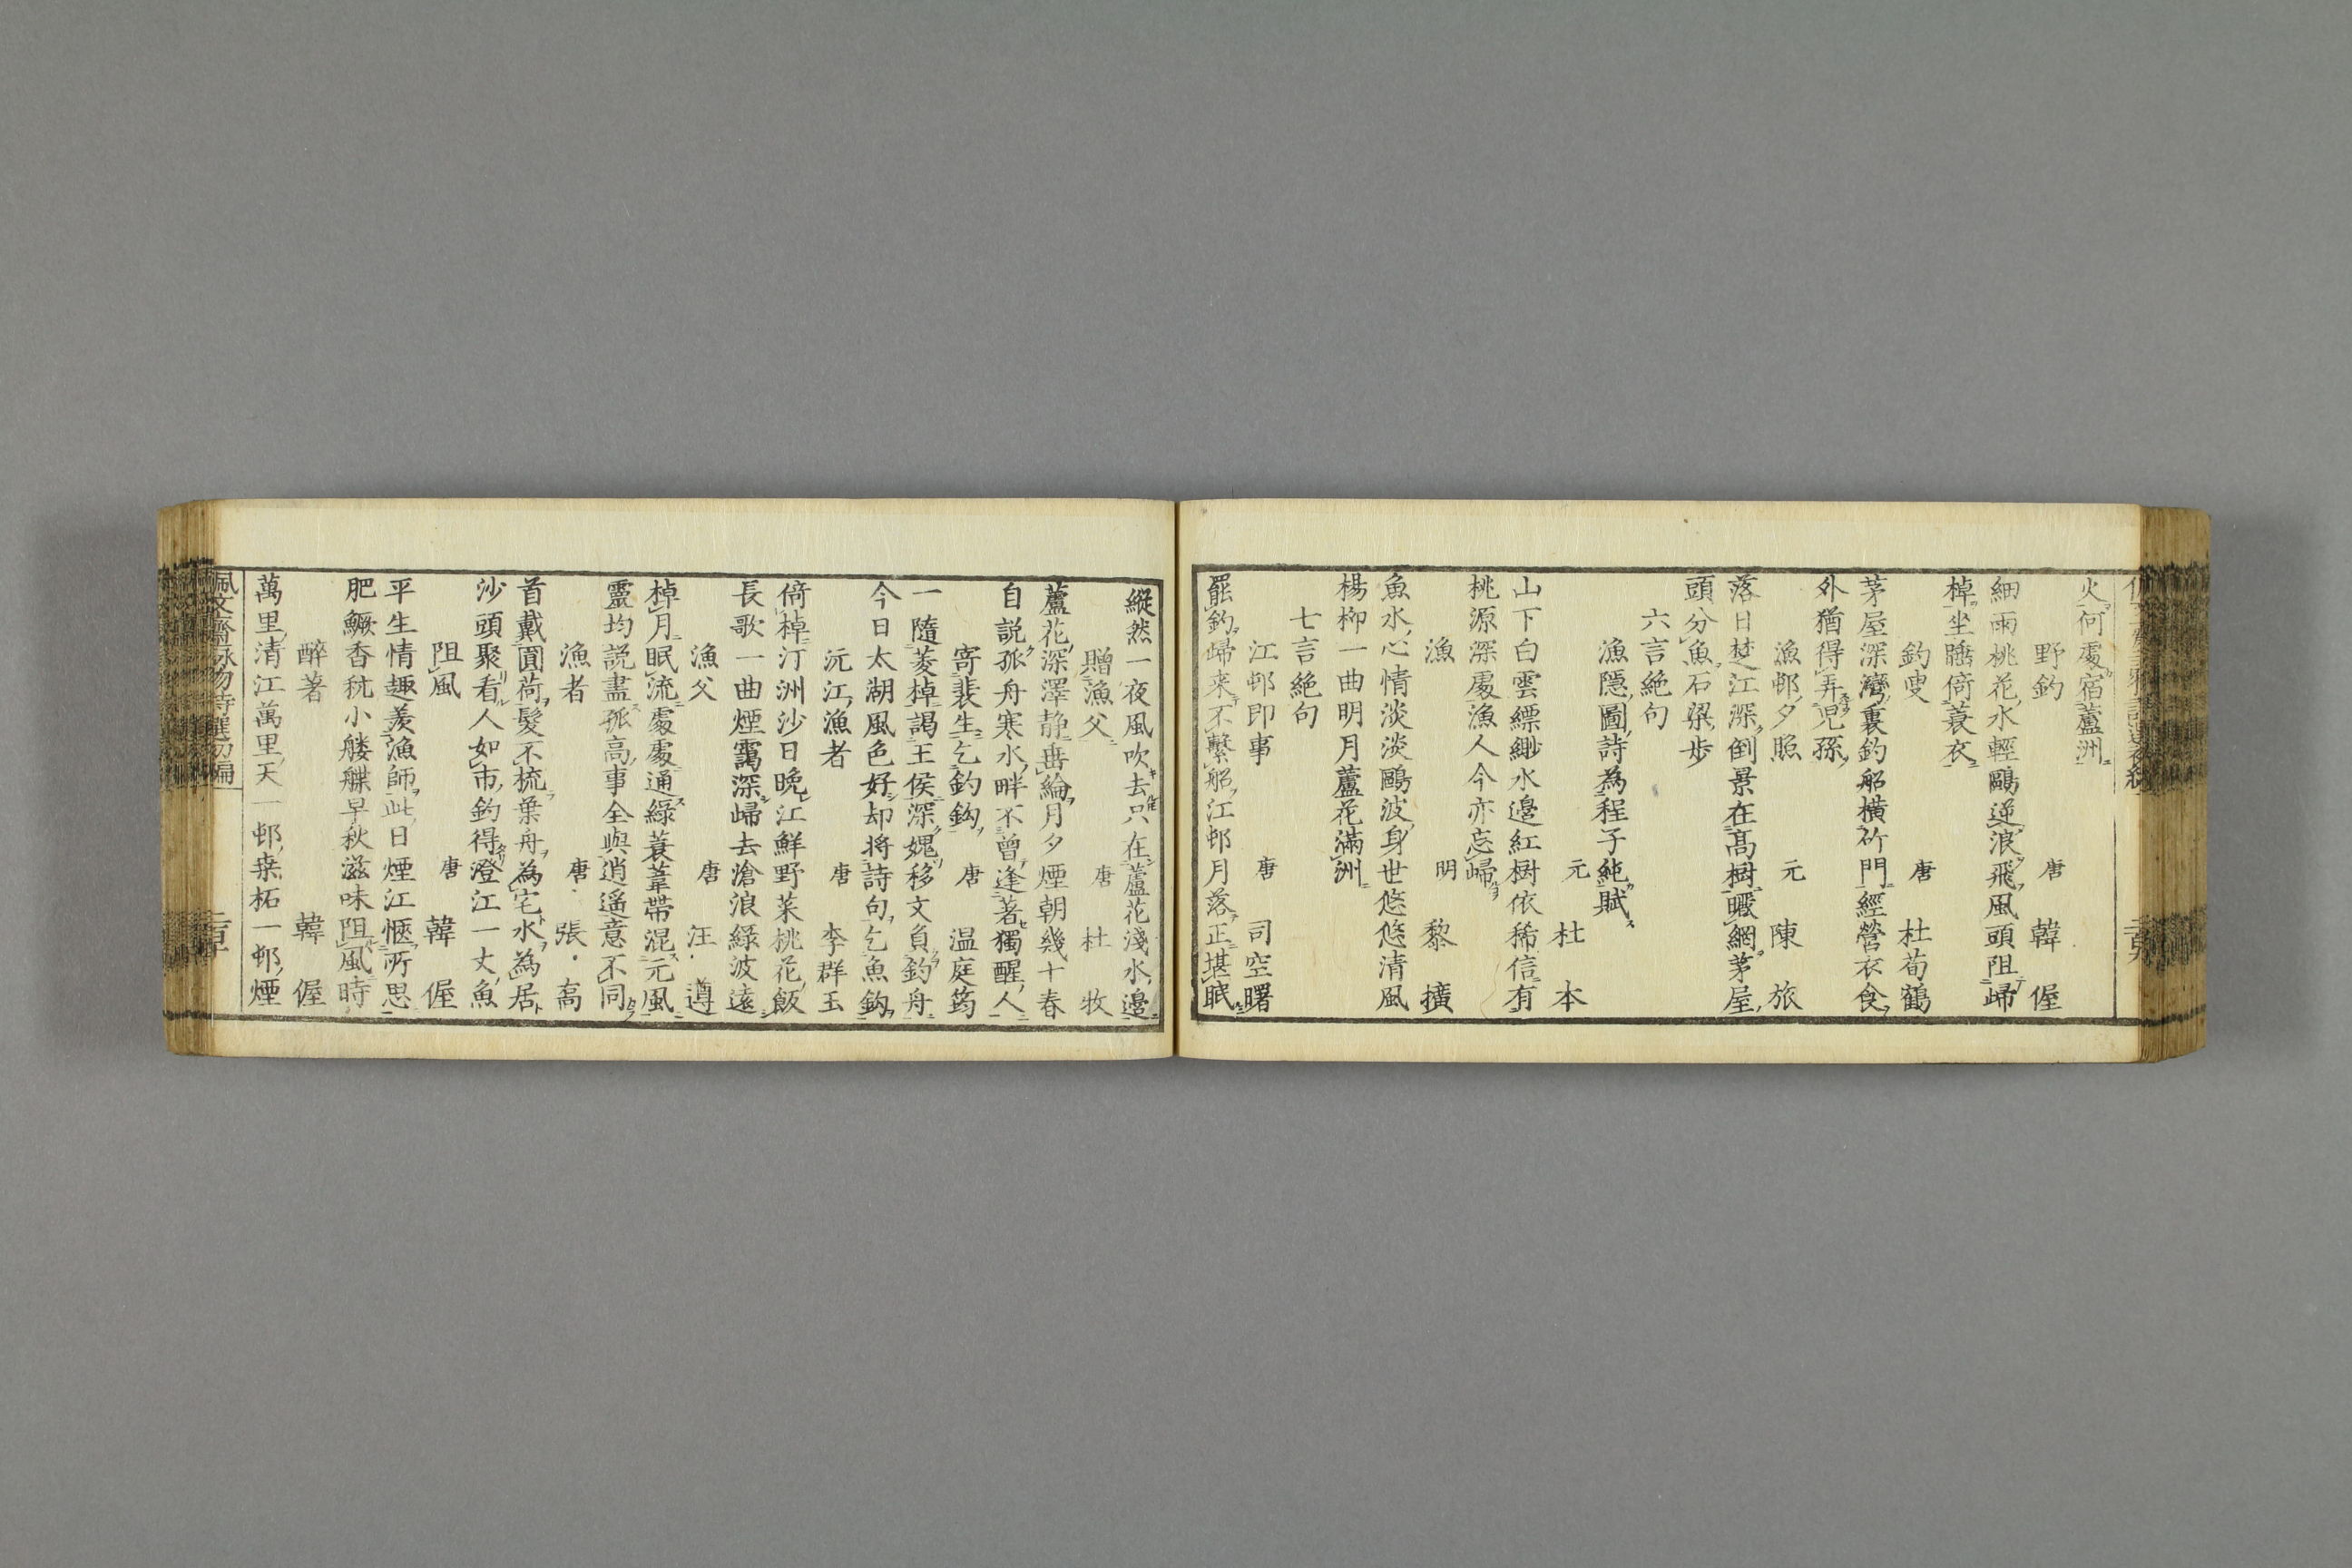 火何處宿蘆洲
野釣 唐 韓偓
細雨桃花水輕鷗逆浪飛風頭阻歸
棹坐睡倚蓑衣
釣叟 唐 杜荀鶴
茅屋深灣裏釣船橫竹門經營衣食
外猶得弄兒孫
漁邨夕照 元 陳旅
落日楚江深倒景在髙樹曬網茅屋
頭分魚石梁步
六言絶句
漁隱圖詩為程子純賦
元 杜本
山下白雲縹緲水邊紅樹依稀信有
桃源深處漁人今亦忘歸
漁 明 黎擴
魚水心情淡淡鷗波身世悠悠清風
楊柳一曲明月蘆花滿洲
七言絶句
江邨即事 唐 司空曙
罷釣歸来不繫船江邨月落正堪眠
縱然一夜風吹去只在蘆花淺水邊
贈漁父 唐 杜牧
蘆花深澤静垂綸月夕煙朝幾十春
自説孤舟寒水畔不曾逢著獨醒人
寄裴生乞釣鈎 唐 温庭筠
一隨菱棹謁王侯深媿移文負釣舟
今日太湖風色好却将詩句乞魚鈎
沅江漁者 唐 李群玉
倚棹汀洲沙日晚江鮮野菜桃花飯
長歌一曲煙靄深歸去滄浪緑波遠
漁父 唐 汪遵
棹月眠流處處通緑蓑葦帶混元風
靈均説盡孤高事全與逍遥意不同
漁者 唐 張喬
首戴圓荷髮不梳葉舟為宅水為居
沙頭聚看人如市釣得澄江一丈魚
阻風 唐 韓偓
平生情趣羨漁師此日煙江愜所思
肥鱖香秔小艛艓早秋滋味阻風時
醉著 韓偓
萬里清江萬里天一邨桑柘一邨煙
佩文齋詠物詩選初編